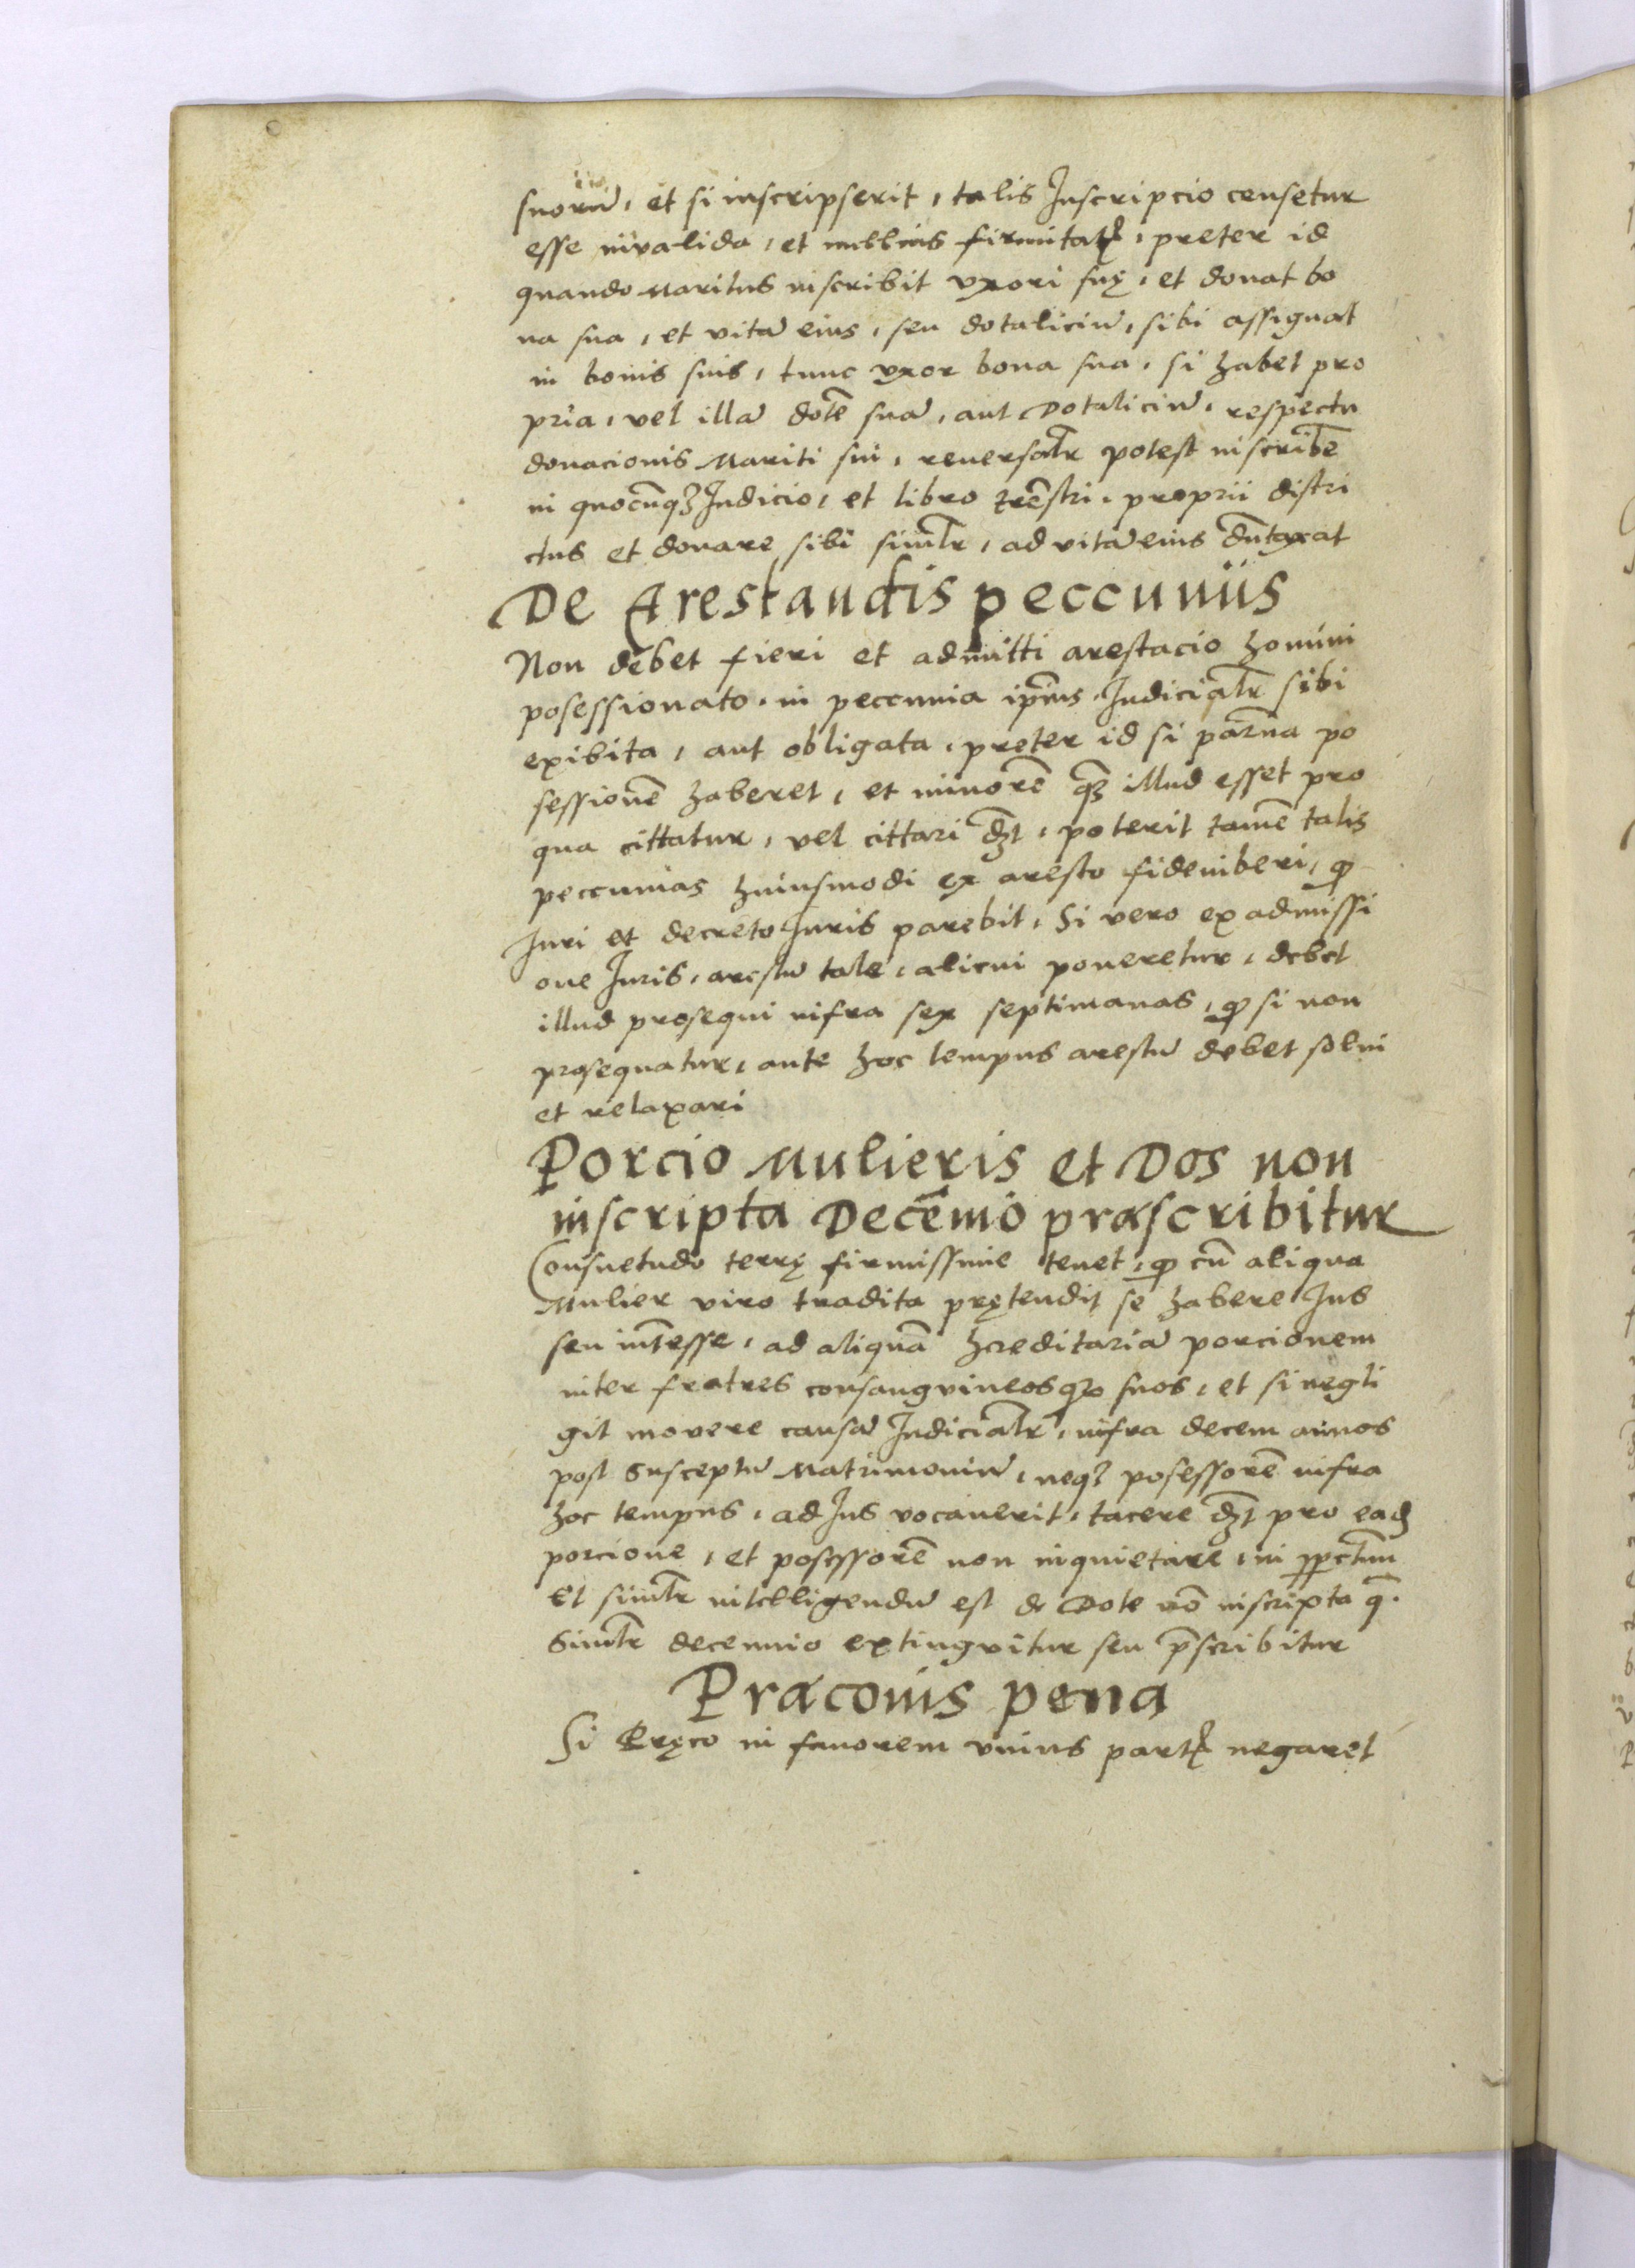 suorū, et si inscripserit, talis Inscripcio censetur
esse invalida, et nullius firmitatꝭ, preter id
quando Maritus inscribit vxori suę, et donat bo
na sua, et vitā eius, seu dotaliciū, sibi assignat
in bonis suis, tunc vxor bona sua, si habet pro
pria, vel illā dotē suā, aut Dotaliciū, respectu
donacionis Mariti sui, reuersalr̄ potest inscribē
in quocūqꝫ Iudicio, et libro trēstri, proprii distri
ctus et donare sibi similr̄, ad vitā eius dūtaxat
De Arestandis peccuniis
Non debet fieri et admitti arestacio homini
posessionato, in peccunia ipīus, Iudicialr̄ sibi
exibita, aut obligata, preter id si paruā po
sessionē haberet, et minorē qꝫ illud esset pro
qua cittatur, vel cittari dꝫt, poterit tamē talis
peccunias huiusmodi ex aresto fideiuberi, ꝙ
Iuri et decreto Iuris parebit, Si vero ex admissi
one Iuris, arestū tale, alicui poneretur, debet
illud prosequi infra sex septimanas, ꝙ si non
prosequatur, ante hoc tempus arestū debet solui
et relaxari
Porcio Mulieris et Dos non
inscripta Decēnio præscribitur
Consuetudo terrę firmissime tenet, ꝙ cū aliqua
Mulier viro tradita prętendit se habere Ius
seu int̄esse, ad aliquā hereditariā porcionem
inter fratres consangvineosqꝫ suos, et si negli
git movere causā Iudicialr̄, infra decem annos
post susceptū Matrimoniū, neqꝫ posessorē infra
hoc tempus, ad Ius vocauerit, tacere dꝫt pro eadꝫ
porcione, et posessorē non inquietare, in ꝑpetūm
Et similr̄ intelligendū est de Dote nō inscripta q̄.
Similr̄ decennio extingvitur seu p̄scribitur
Præconis pena
Si Pręco in fauorem vnius partꝭ negaret